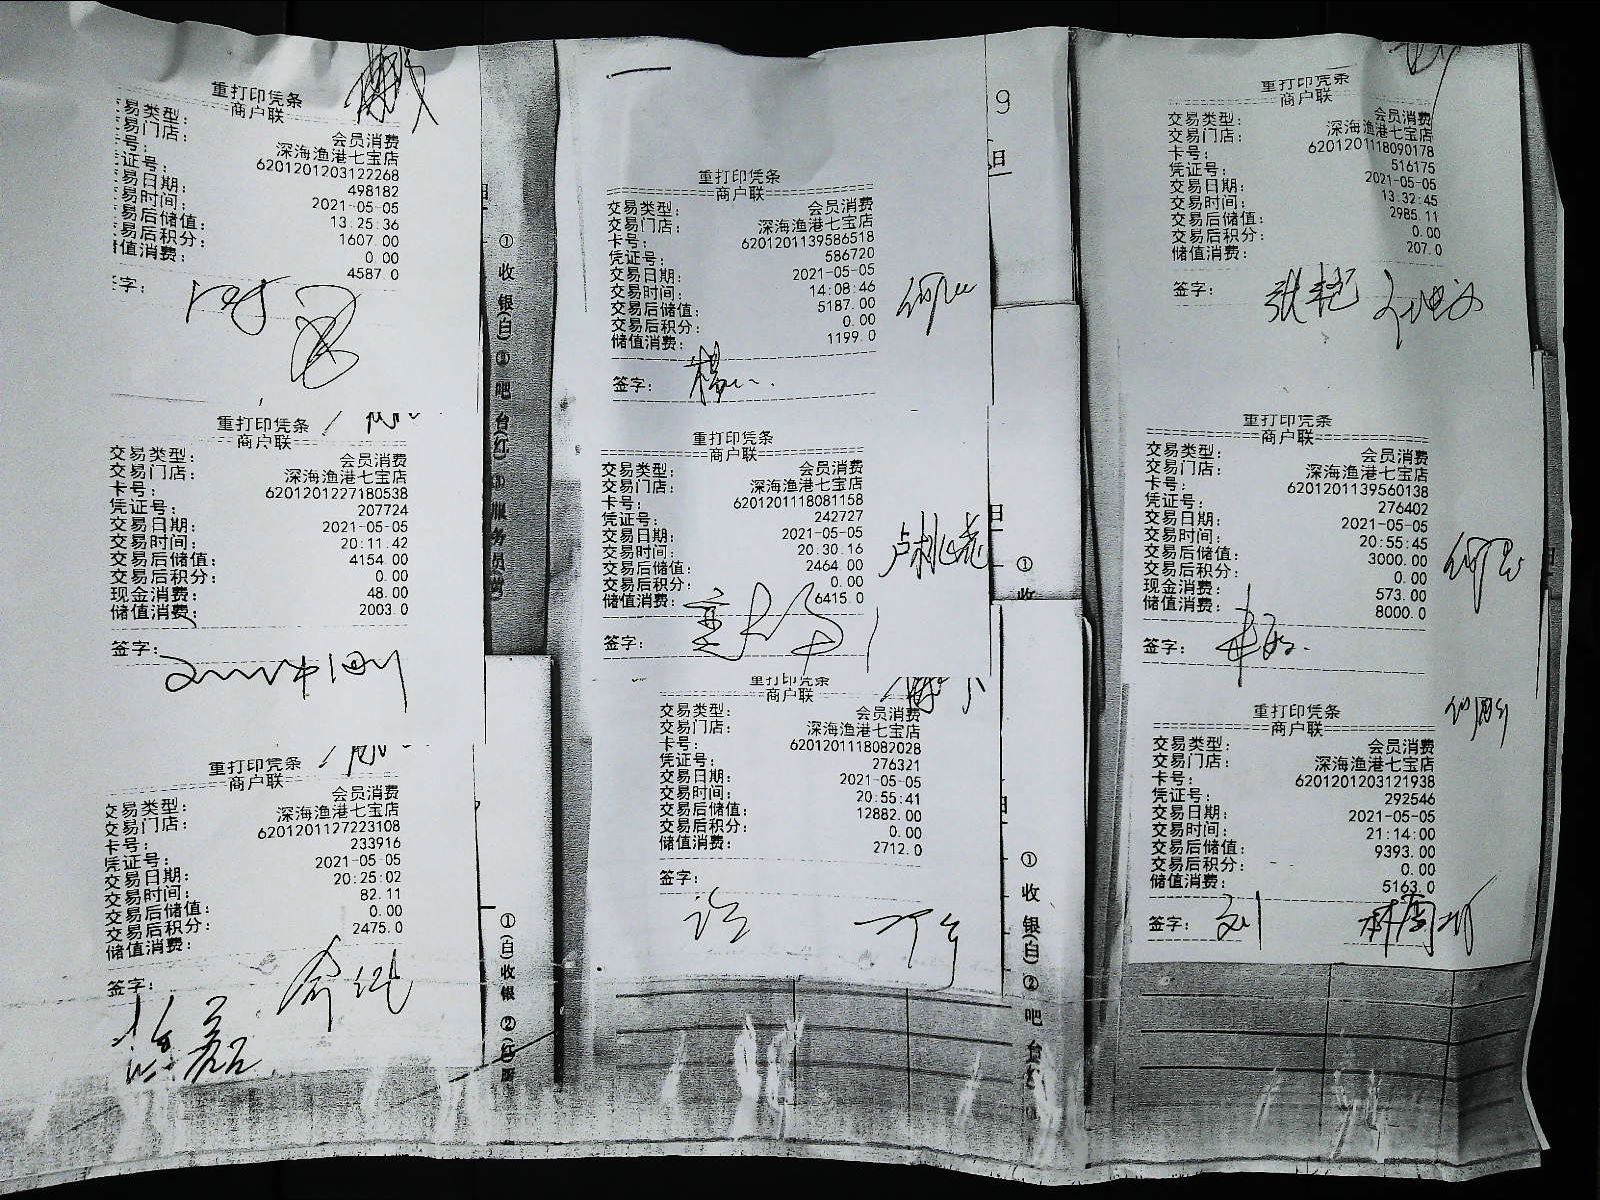 重打印凭条
商户联
易类型: 会员消费
易门店: 深海渔港七宝店
号: 6201201203122268
证号: 498182
易日期: 2021-05-05
易时间: 13.25.36
易后储值: 1607.00
易后积分: 0.00
值消费: 4587.0
字:
重打印凭条
商户联
交易类型: 会员消费
交易门店: 深海渔港七宝店
卡号: 6201201227180538
凭证号: 207724
交易日期: 2021-05-05
交易时间: 20:11.42
交易后储值: 4154.00
交易后积分: 0.00
现金消费: 48.00
储值消费: 2003.0
签字:
重打印凭条
商户联
交易类型: 会员消费
交易门店: 深海渔港七宝店
卡号: 6201201127223108
凭证号: 233916
交易日期: 2021-05-05
交易时间: 20:25:02
交易后储值: 82.11
交易后积分: 0.00
储值消费: 2475.0
签字:
①收银(白)②吧台(红)
①(白)收银②(红)
重打印凭条
商户联
交易类型: 会员消费
交易门店: 深海渔港七宝店
卡号: 6201201139586518
凭证号: 586720
交易日期: 2021-05-05
交易时间: 14:08:46
交易后储值: 5187.00
交易后积分: 0.00
储值消费: 1199.0
签字: 杨
重打印凭条
商户联
交易类型: 会员消费
交易门店: 深海渔港七宝店
卡号: 6201201118081158
凭证号: 242727
交易日期: 2021-05-05
交易时间: 20.30.16
交易后储值: 2464.00
交易后积分: 0.00
储值消费: 6415.0
签字:
重打印凭条
商户联
交易类型: 会员消费
交易门店: 深海渔港七宝店
卡号: 6201201118082028
凭证号: 276321
交易日期: 2021-05-05
交易时间: 20:55:41
交易后储值: 12882.00
交易后积分: 0.00
储值消费: 2712.0
签字:
9
①收银(白)②吧台
重打印凭条
商户联
交易类型: 会员消费
交易门店: 深海渔港七宝店
卡号: 6201201118090178
凭证号: 516175
交易日期: 2021-05-05
交易时间: 13.32:45
交易后储值: 2985.11
交易后积分: 0.00
储值消费: 207.0
签字: 张艳
重打印凭条
商户联
交易类型: 会员消费
交易门店: 深海渔港七宝店
卡号: 6201201139560138
凭证号: 276402
交易日期: 2021-05-05
交易时间: 20:55:45
交易后储值: 3000.00
交易后积分: 0.00
现金消费: 573.00
储值消费: 8000.0
签字:
重打印凭条
商户联
交易类型: 会员消费
交易门店: 深海渔港七宝店
卡号: 6201201203121938
凭证号: 292546
交易日期: 2021-05-05
交易时间: 21:14:00
交易后储值: 9393.00
交易后积分: 0.00
储值消费: 5163.0
签字: 刘